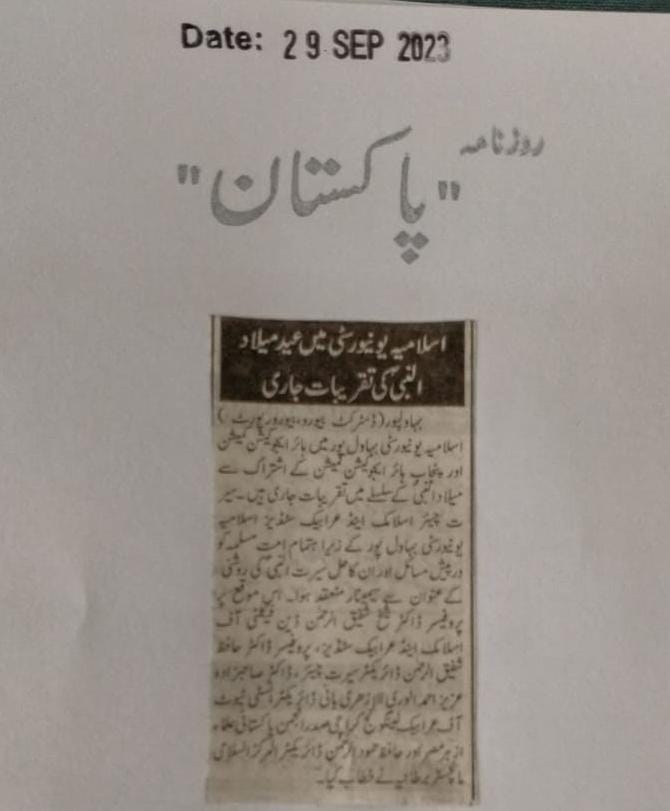 Date: 29 SEP 2023
روزنامہ
"پاکستان"
اسلامیہ یونیورسٹی میں عید میلاد
النبیؐ کی تقریبات جاری
بہاولپور (ڈسٹرکٹ بیورو، بیورو رپورٹ)
اسلامیہ یونیورسٹی بہاول پور میں ہائر ایجوکیشن کمیشن
اور پنجاب ہائر ایجوکیشن کمیشن کے اشتراک سے
میلاد النبیؐ کے سلسلے میں تقریبات جاری ہیں۔ سیر
ت چیئر اسلامک اینڈ عرابیک سٹڈیز اسلامیہ
یونیورسٹی بہاول پور کے زیراہتمام امت مسلمہ کو
درپیش مسائل اور ان کا حل سیرت النبیؐ کی روشنی
کے عنوان سے سیمینار منعقد ہوا۔ اس موقع پر
پروفیسر ڈاکٹر شیخ شفیق الرحمن ڈین فیکلٹی آف
اسلامک اینڈ عرابیک سٹڈیز، پروفیسر ڈاکٹر حافظ
شفیق الرحمن ڈائریکٹر سیرت چیئر، ڈاکٹر صاحبزادہ
عزیز احمد الوری الازھری بانی ڈائریکٹر انسٹی ٹیوٹ
آف عرابیک لینگوئج کراچی صدر انجمن پاکستانی علماء
ازہر مصر اور حافظ حمود الرحمن ڈائریکٹر المرکز السلامی
مانچسٹر برطانیہ نے خطاب کیا۔